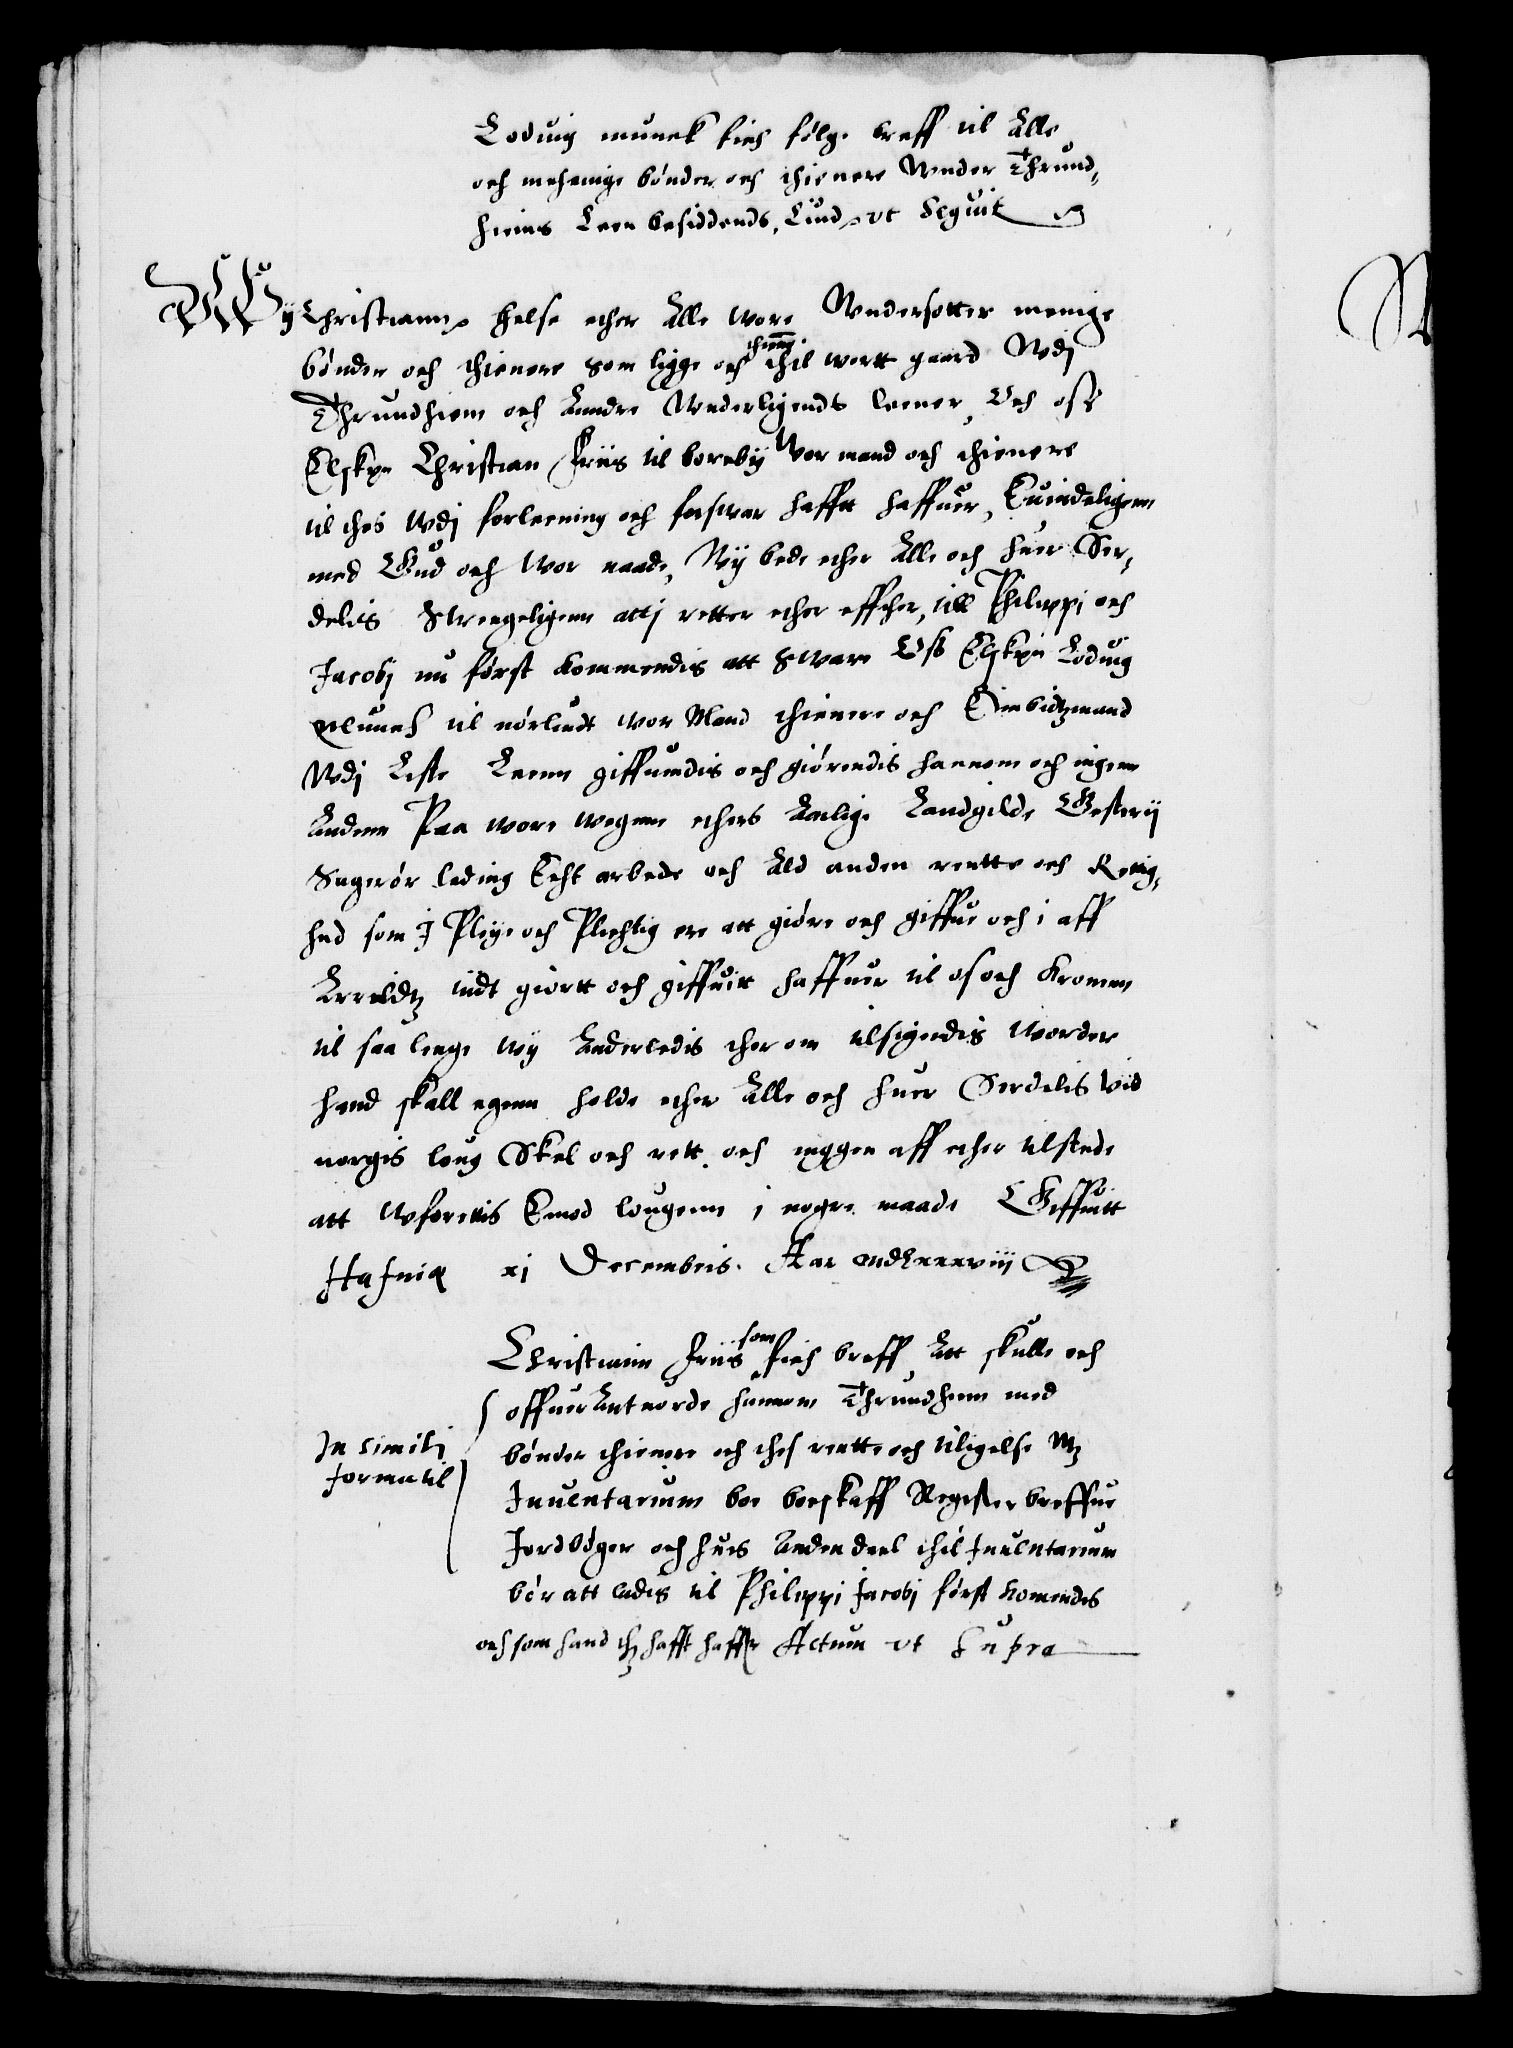 Loduig munck fich følge breff til Alle
och mehenige bønder och thienere Vnder Thrund,
hiems Leen besiddends, Liud. vt Sequit
Wij Christiann helse ether Alle wore Vndersotter menige
bønder och thienere som ligge och thien thil wortt gaard Vdj
Thrundhiem och Andre Vnderligends leener, Och oss
Elskpe Christian Friis til borebij Vor mand och thienere
til thes Vdj forleening och forswar hafft haffuer, Euindeligenn
med Gud och Wor naade, Wij bede ether Alle och huer Ser,
delis Strengeligenn attj retter ether effther, till Philippi och
Jacobj nu først Kommendis att Sware Oss Elskpe Loduig
Munck til nørlundt wor Mand thienere och Embidtzmand
Vdj Leste Leenn giffuendis och giørendis hannom och ingenn
Anden Paa wore wegenn ethers Aarlige Landgilde Gesterij
Sagerør leding Echt arbede och Ald anden rentte och Rettig,
hed som I Pleye och Plichtig ere att giøre och giffue och i aff
Arrildtz tiidt giørtt och giffuitt haffuer til os och Kronen
til saa lenge wij Anderledis ther om tilsigendis worder
hand skall egenn holde ether Alle och huer Serdelis Vid
norgis loug Skel och rett, och inggen aff ether tilstede
att Wforrettis Emod lougenn i nogre maade Giffuitt
Hafniæ xj Decembris. Aar mdlxxxviij
Christiann Friis som fich breff Att skulle och
offuer Antuorde hannom Thrundhiem med
In simili
forma til
bønder thienere och thes rentte och tiligelse Mz
Inuentarium boe boeskaff Register breffue
Jordbøger och hues Anden deel thil Inuentarium
bør att ledis til Philippi Jacobj først Komendes
och som hand thz hafft haffr Actum vt Supra